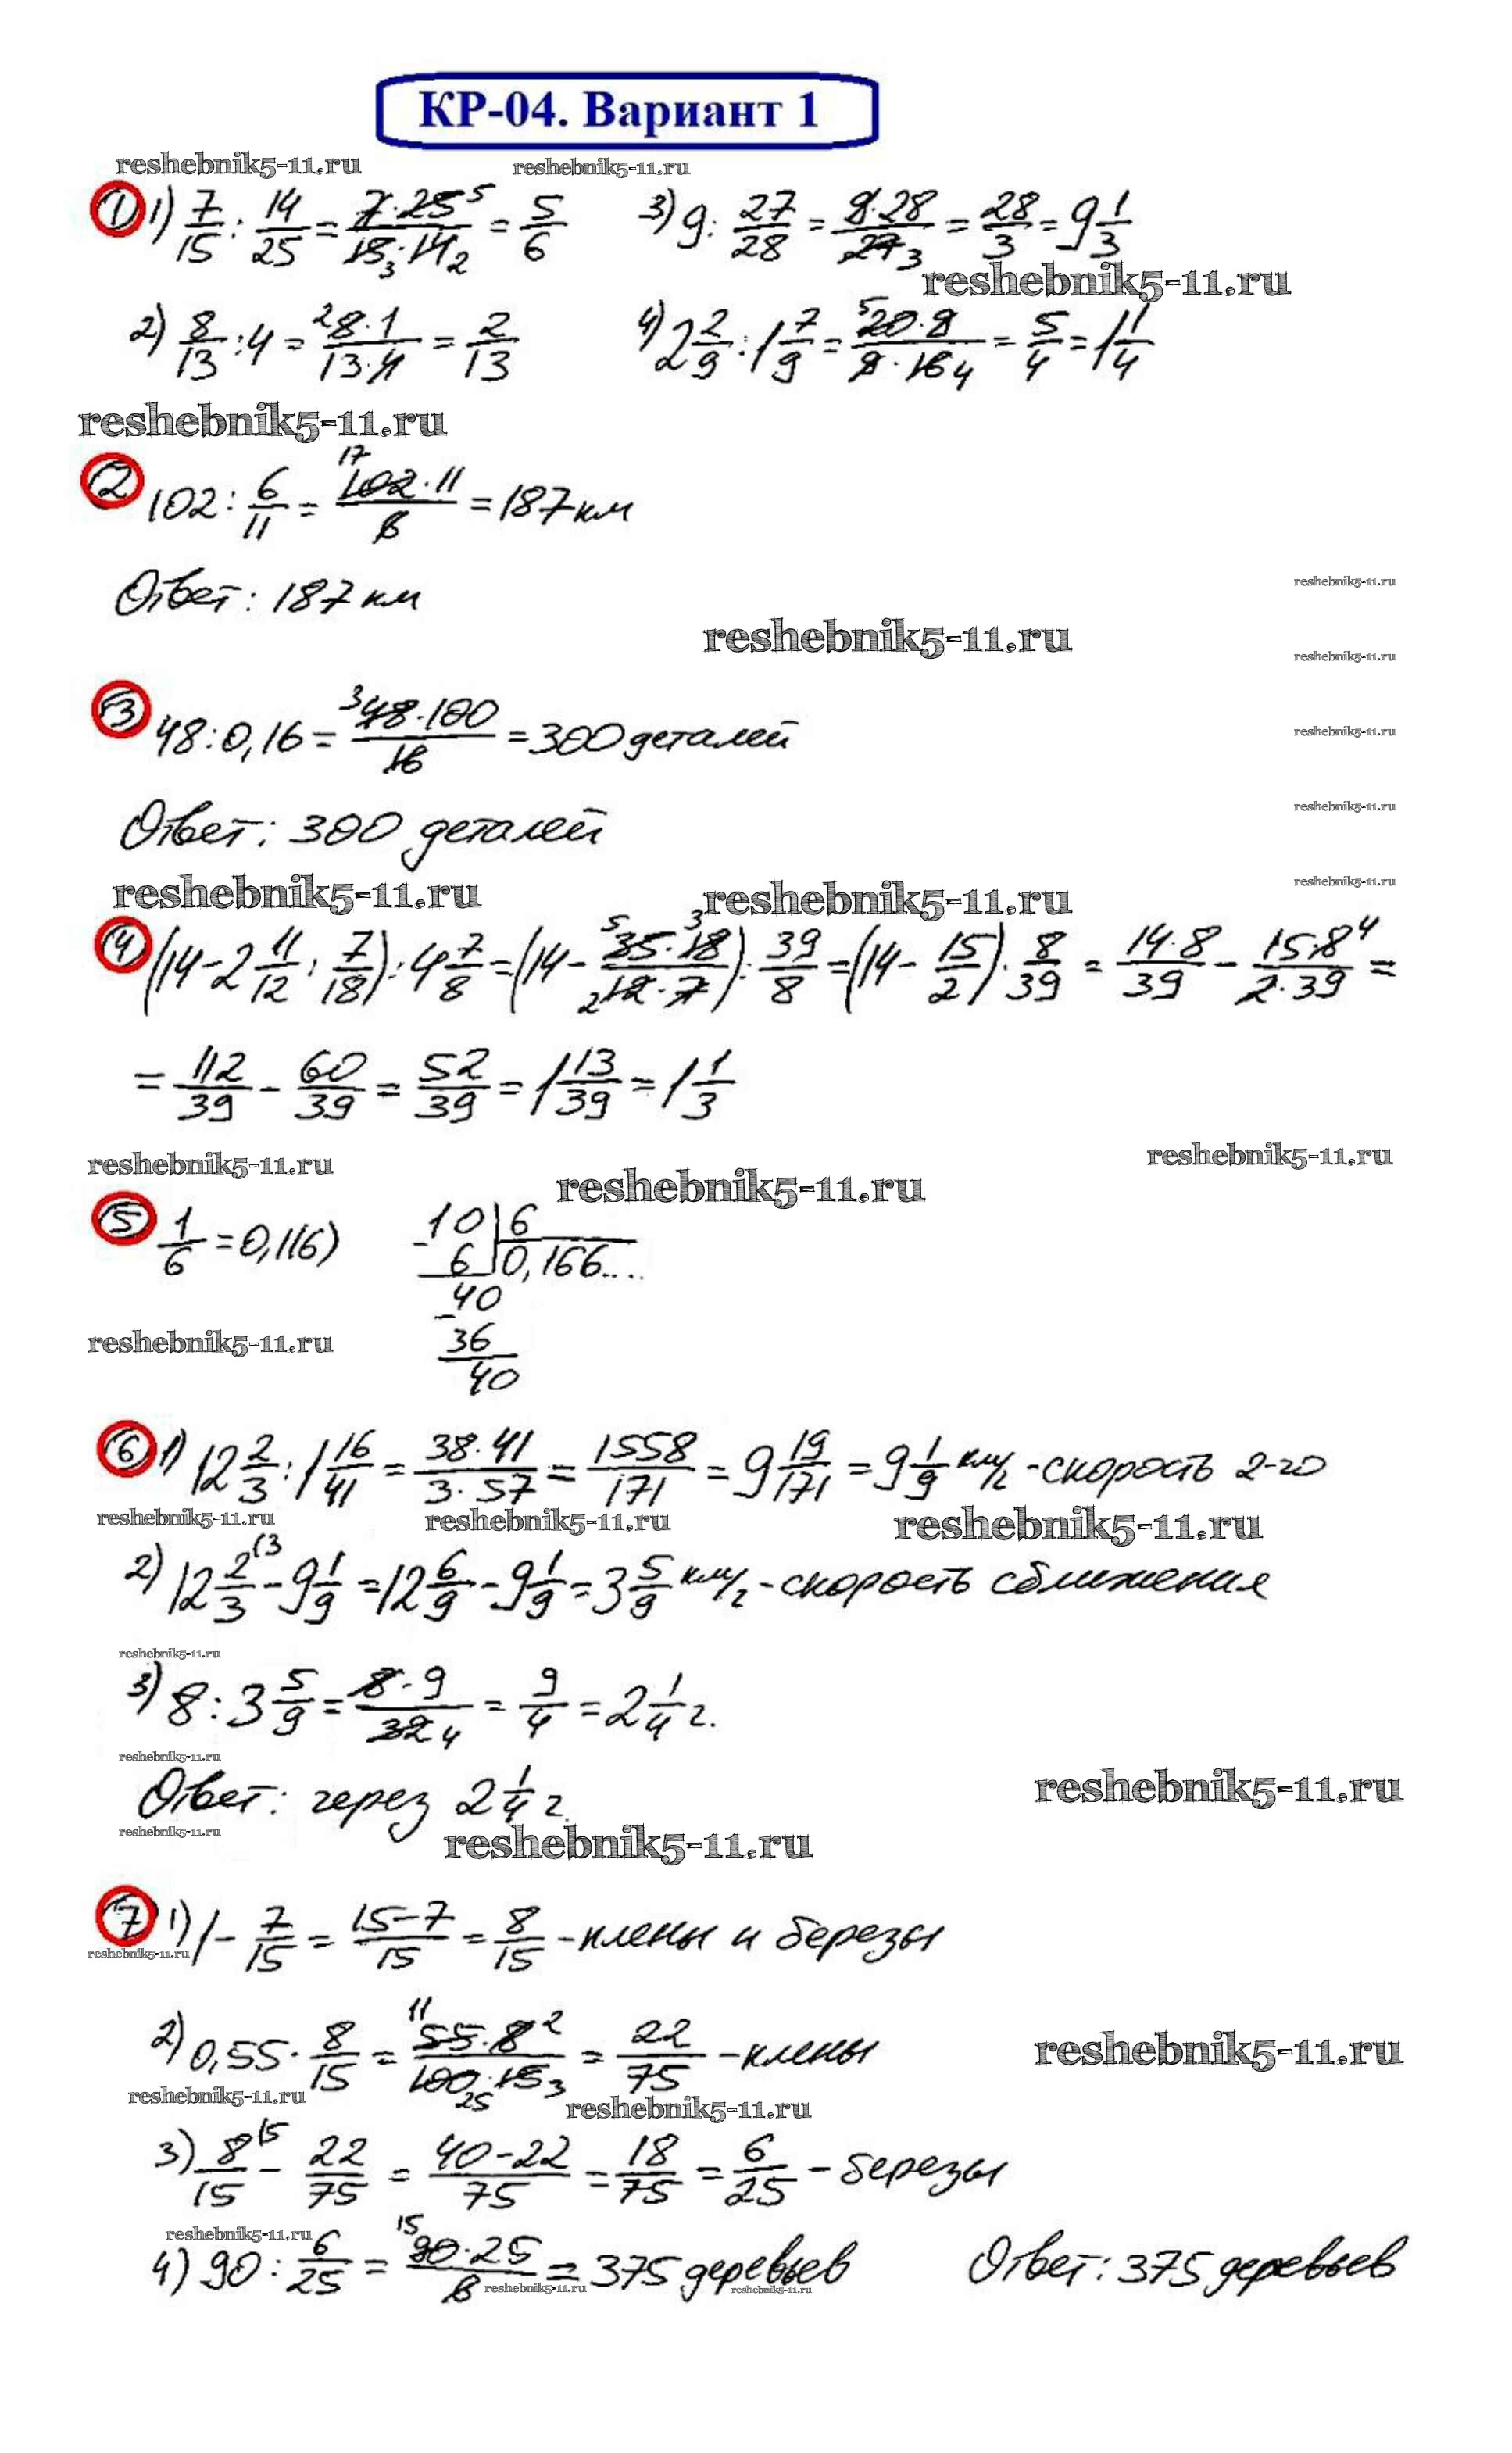 КР-04. Вариант 1
reshebnik5-11.ru reshebnik5-11.ru
① 1) 7/15 : 14/25 = 7·25⁵/15₃·14₂ = 5/6 3) 9 : 27/28 = 9·28/27₃ = 28/3 = 9 1/3
reshebnik5-11.ru
2) 8/13 : 4 = ²8·1/13·4 = 2/13 4) 2 2/9 : 1 7/9 = ⁵20·9/9·16₄ = 5/4 = 1 1/4
reshebnik5-11.ru
② 102 : 6/11 = ¹⁷102·11/6 = 187 км
Ответ: 187 км
reshebnik5-11.ru
reshebnik5-11.ru
reshebnik5-11.ru
③ 48 : 0,16 = ³48·100/16 = 300 деталей
reshebnik5-11.ru
reshebnik5-11.ru
Ответ: 300 деталей
reshebnik5-11.ru reshebnik5-11.ru reshebnik5-11.ru
④ (14 - 2 11/12 : 7/18) : 4 7/8 = (14 - ⁵35·18³/₂12·7) : 39/8 = (14 - 15/2) · 8/39 = 14·8/39 - 15·8⁴/2·39 =
= 112/39 - 60/39 = 52/39 = 1 13/39 = 1 1/3
reshebnik5-11.ru reshebnik5-11.ru reshebnik5-11.ru
⑤ 1/6 = 0,1(6) 10 | 6
- 6 | 0,166...
40
- 36
40
reshebnik5-11.ru
⑥ 1) 12 2/3 : 1 16/41 = 38·41/3·57 = 1558/171 = 9 19/171 = 9 1/9 км/г - скорость 2-го
reshebnik5-11.ru reshebnik5-11.ru reshebnik5-11.ru
2) 12 2/3⁽³ - 9 1/9 = 12 6/9 - 9 1/9 = 3 5/9 км/г - скорость сближения
reshebnik5-11.ru
3) 8 : 3 5/9 = 8·9/32₄ = 9/4 = 2 1/4 г.
reshebnik5-11.ru
Ответ: через 2 1/4 г.
reshebnik5-11.ru
reshebnik5-11.ru reshebnik5-11.ru
⑦ 1) 1 - 7/15 = 15-7/15 = 8/15 - клены и березы
reshebnik5-11.ru
2) 0,55 · 8/15 = ¹¹55·8²/100₂₅·15₃ = 22/75 - клены
reshebnik5-11.ru
reshebnik5-11.ru reshebnik5-11.ru
3) 8/15⁽⁵ - 22/75 = 40-22/75 = 18/75 = 6/25 - березы
reshebnik5-11.ru
4) 90 : 6/25 = ¹⁵90·25/6 = 375 деревьев Ответ: 375 деревьев
reshebnik5-11.ru reshebnik5-11.ru